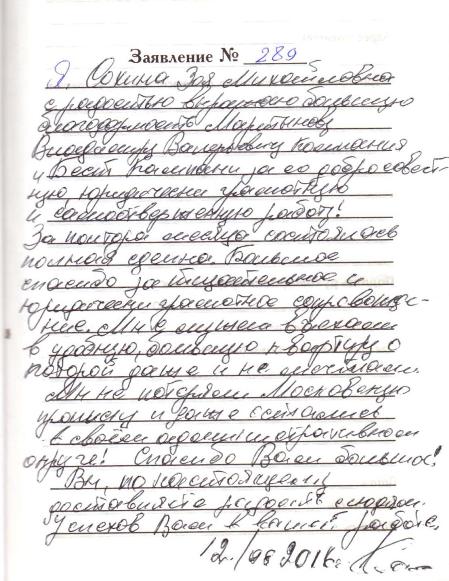 Заявление № 289
Я, Сохина Зоя Михайловна
с радостью выражаю большую
благодарность Мартынову
Владимиру Валерьевичу Компания
и Бест Компани за его добросовест-
ную, юридически грамотную
и самоотверженную работу!
За полтора месяца состоялась
полная сделка. Большое
спасибо за тщательное и
юридически грамотное сопровожде-
ние. Мы с мужем въехали
в удобную, большую квартиру о
которой даже и не мечтали.
Мы не потеряли Московскую
прописку и даже остались
в своём административном
округе! Спасибо Вам большое!
Вы, по настоящему
доставляете радость людям.
Успехов Вам в вашей работе.
12. 2016г.